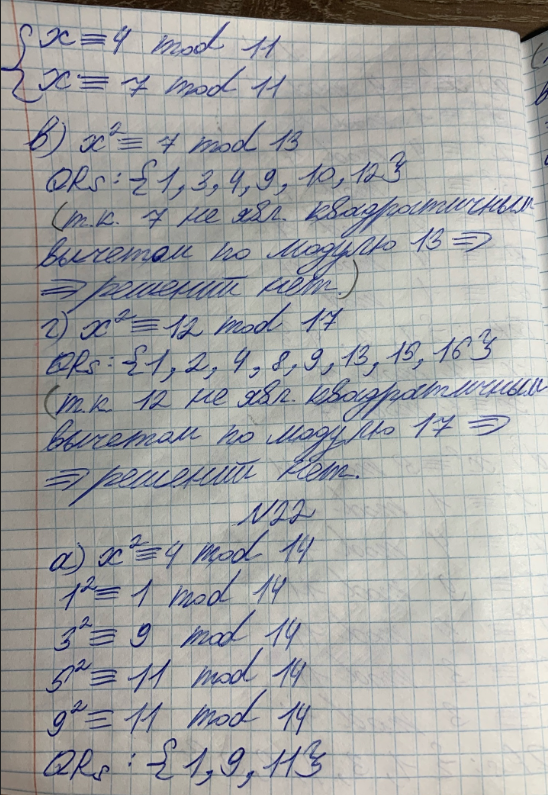 { x ≡ 4 mod 11
x ≡ 7 mod 11
в) x² ≡ 7 mod 13
QRs : {1, 3, 4, 9, 10, 12}
(т.к. 7 не явл. квадратичным
вычетом по модулю 13 ⇒
⇒ решений нет)
г) x² ≡ 12 mod 17
QRs : {1, 2, 4, 8, 9, 13, 15, 16}
(т.к. 12 не явл. квадратичным
вычетом по модулю 17 ⇒
⇒ решений нет.
N22
а) x² ≡ 4 mod 14
1² ≡ 1 mod 14
3² ≡ 9 mod 14
5² ≡ 11 mod 14
9² ≡ 11 mod 14
QRs : {1, 9, 11}